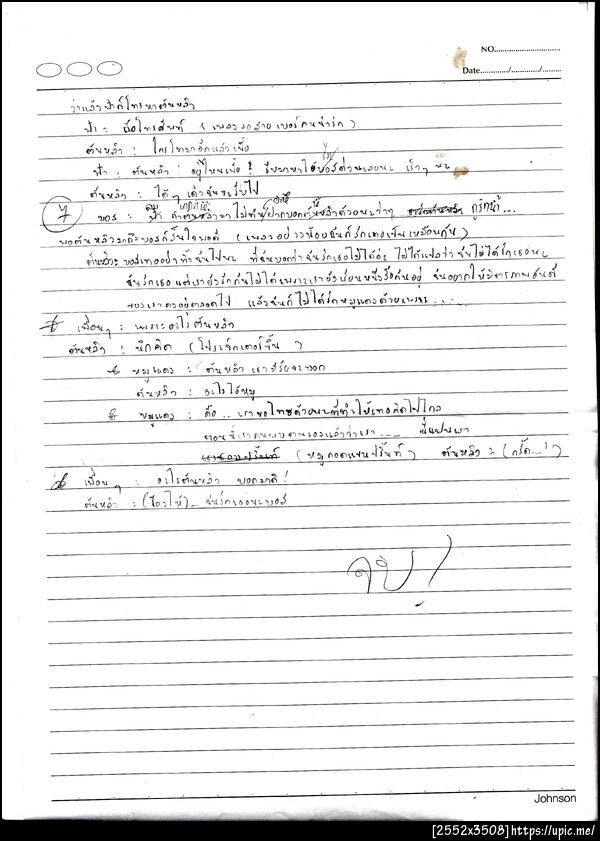 NO.
Date........../........../..........
ว่าแล้วฟ้าก็โทรหาต้นหลิว
ฟ้า : มือโทรศัพท์ (เพลงรอสาย เบอร์คนน่ารัก)
ต้นหลิว : ใครโทรมาอีกแล้วเนี้ย
ฟ้า : ต้นหลิว อยู่ไหนเนี้ย ! รีบมาหาไอ้บอสด่วนเลยนะ เร็วๆ นะ
ต้นหลิว : ได้ๆ เดี๋ยวฉันจะรีบไป
7 บอส : ฟ้า ถ้าต้นหลิวมาไม่ทัน ฝากบอกต้นหลิวด้วยนะว่าๆ กูรัก
พอต้นหลิวมาถึงบอสก็สิ้นใจพอดี (เพลง อย่างน้อยฉันก็รักเธอ
ต้นหลิว : บอสเธออย่าทิ้งฉันไปนะ ที่ฉันบอกว่าฉันรักเธอไม่ได้
ฉันรักเธอ แต่เรายังรักกันไม่ได้เพราะเรายังเรียนหนังสือกันอยู่ ฉันอยากให้มิตรภาพ
ของเราคงอยู่ตลอดไป แล้วฉันก็ไม่ได้รักหมูแดงด้วยเพราะ.....
เพื่อนๆ : เพราะอะไรต้นหลิว
ต้นหลิว : นึกคิด (โปรเจ็กเตอร์ขึ้น)
หมูแดง : ต้นหลิว เรามีเรื่องจะบอก
ต้นหลิว : อะไรไอ้หมู
หมูแดง : คือ.. เราขอโทษด้วยนะที่ทำให้เธอคิดไปไกล
ตอนนี้เราค้นพบตัวเองแล้วว่าเรา.... นี่แฟนเรา
(หมูกอดแฟนปริ้นท์) ต้นหลิว : (กรี้ด...!)
เพื่อนๆ : อะไรต้นหลิว บอกมาดิ !
ต้นหลิว : (ร้องไห้).. ฉันรักเธอนะบอส
จบ !
Johnson
[2552x3508]https://upic.me/